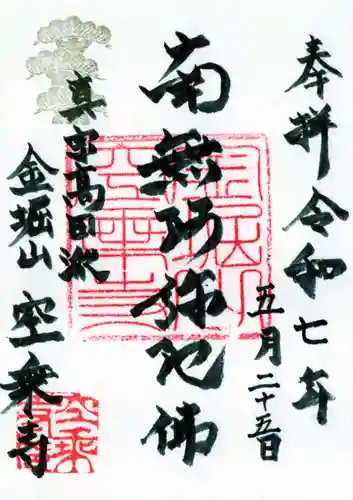 奉拝令和七年
五月二十五日
南無阿弥陀佛
真宗高田派
金堀山空乗寺